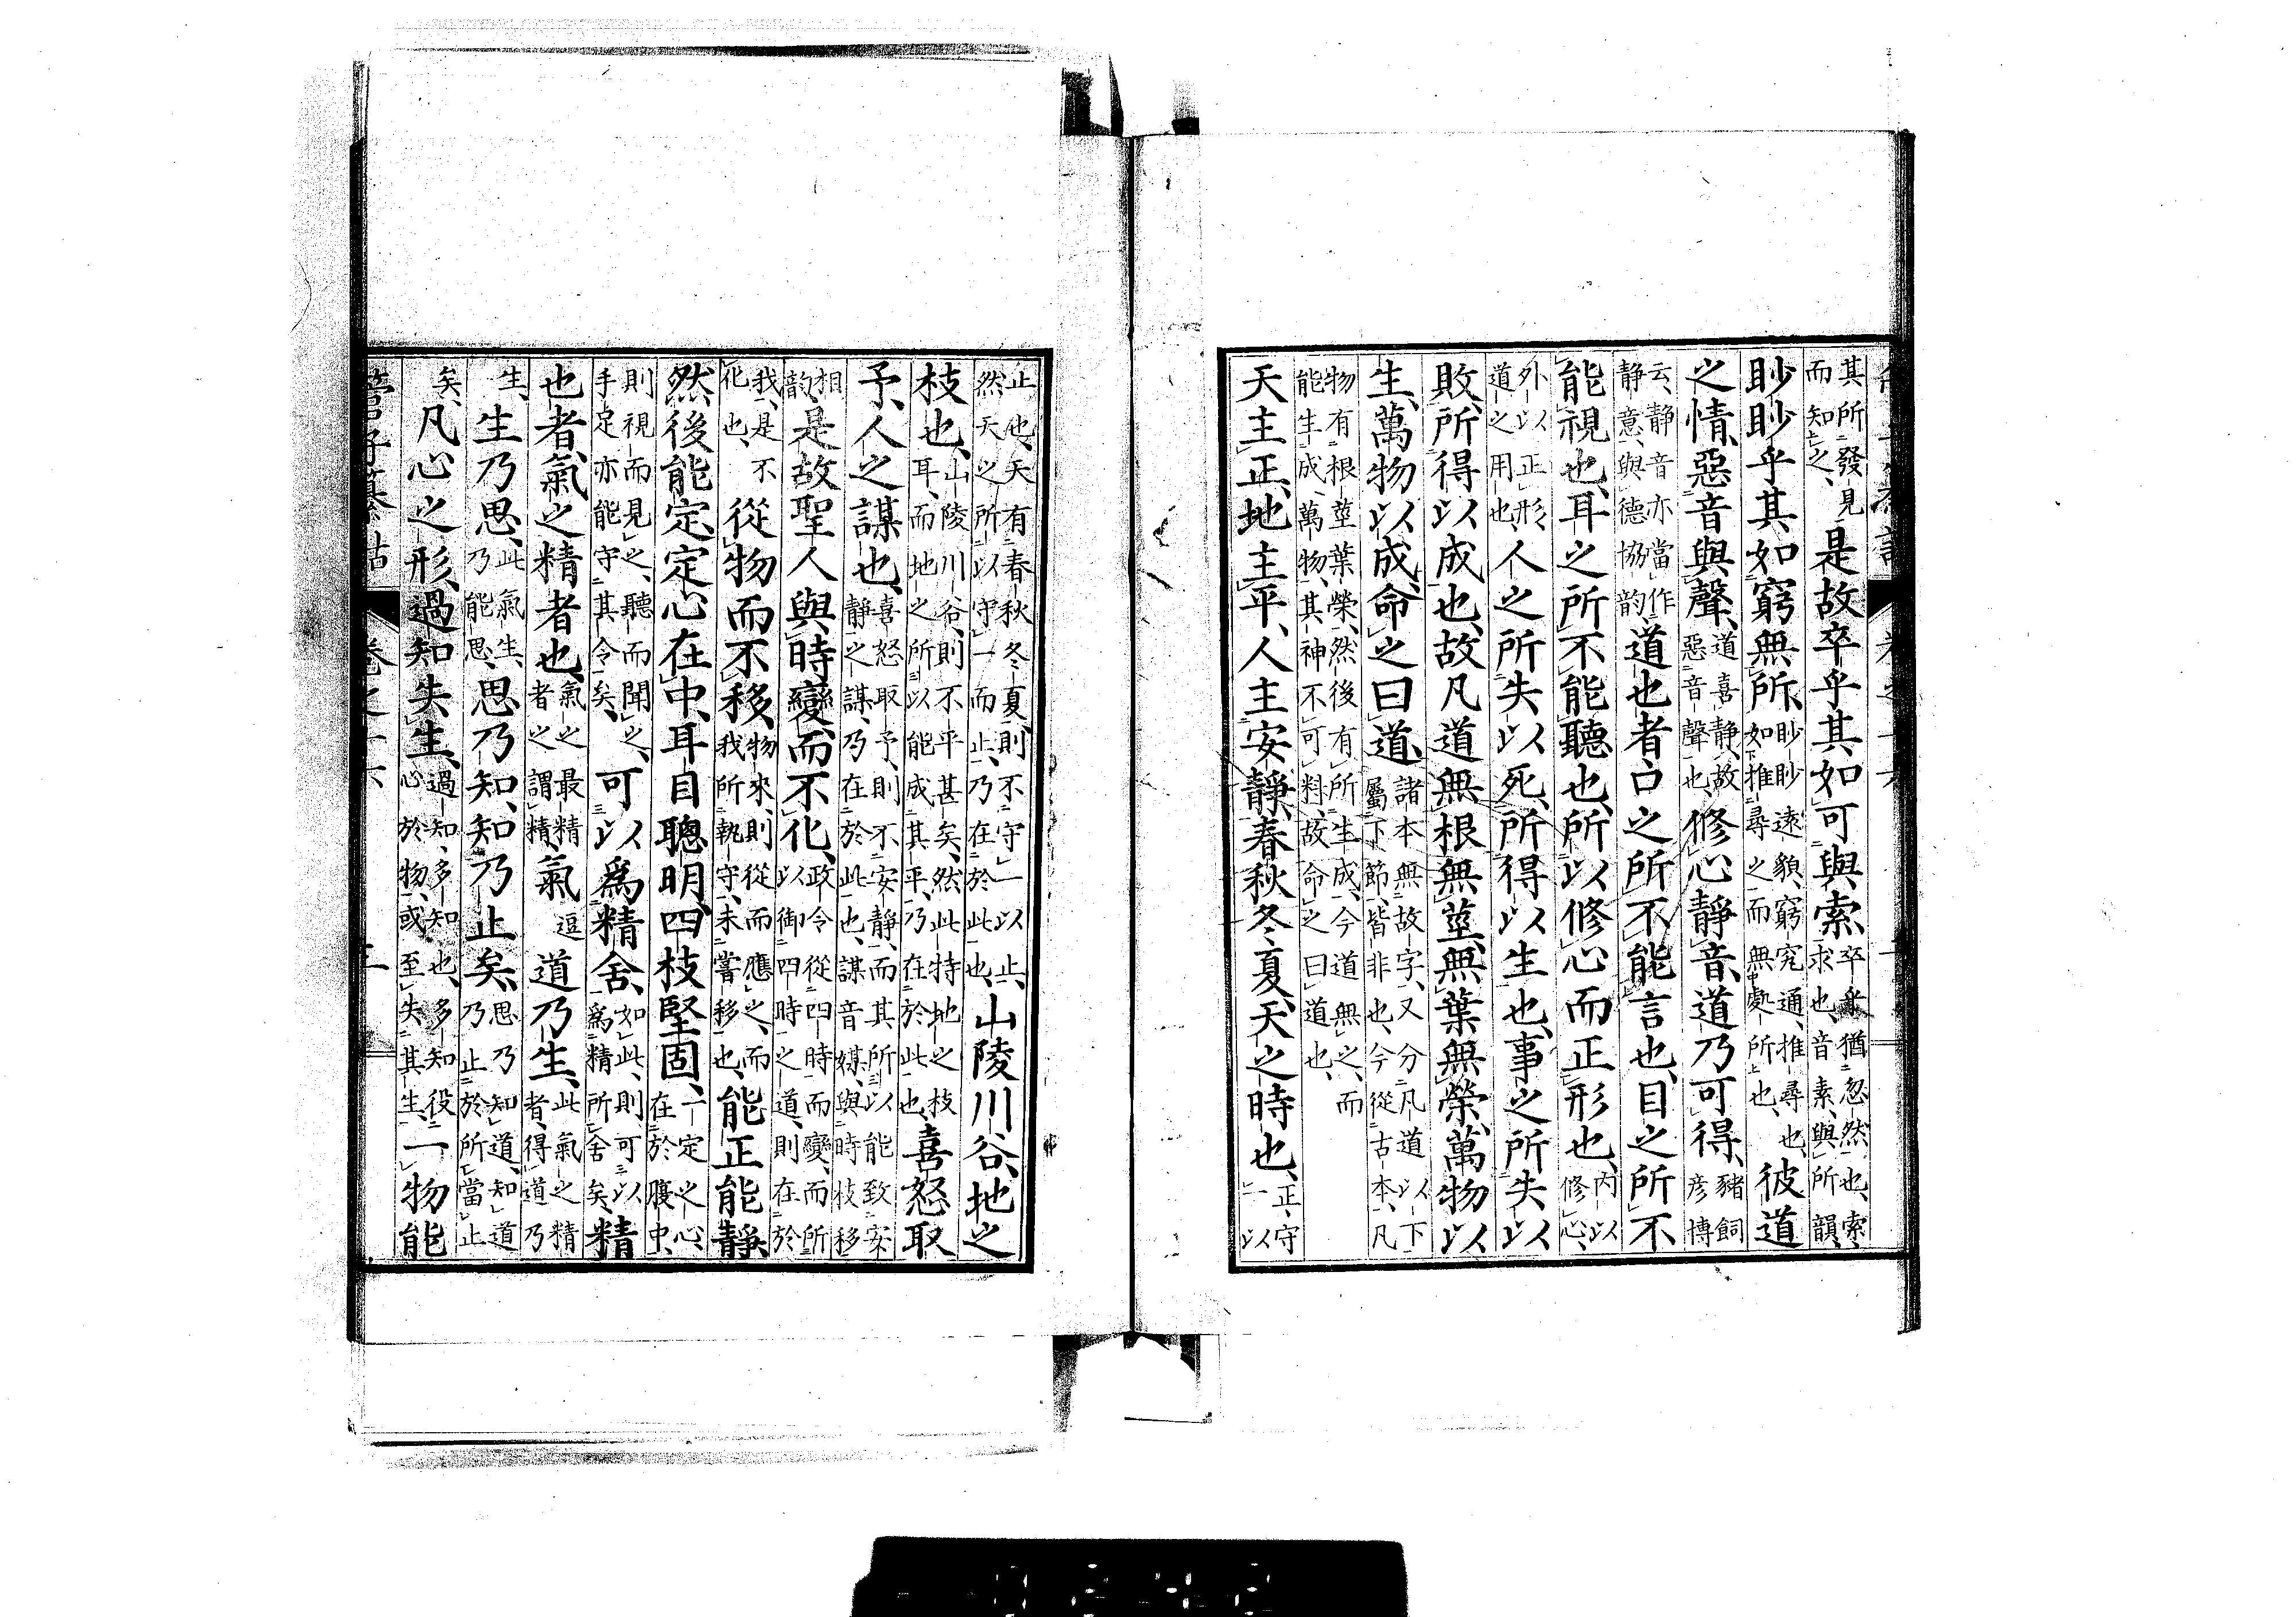 其所發見而知之、是故卒乎其如可與索、卒乎猶忽然也、索、求也、音素、與所韻、
眇眇乎其如窮無所、眇眇遠貌、窮究通、推尋也、如推尋之而無處所也、彼道
之情、惡音與聲、道喜靜、故惡音聲也、修心靜音、道乃可得、豬飼彥博
云、靜音亦當作靜意、與德協韵、道也者、口之所不能言也、目之所不
能視也、耳之所不能聽也、所以修心而正形也、內以修心、
外以正形、道之用也、人之所失以死、所得以生也、事之所失以
敗、所得以成也、故凡道無根無莖、無葉無榮、萬物以
生、萬物以成、命之曰道、諸本無故字、又分凡道以下屬下節、皆非也、今從古本、凡
物有根莖葉榮、然後有所生成、今道無之、而能生成萬物、其神不可料、故命之曰道也、
天主正、地主平、人主安靜、春秋冬夏、天之時也、正、守一以
止也、天有春秋冬夏、則不守一以止、然天之所以守一而止、乃在於此也、山陵川谷、地之
枝也、山陵川谷、則不平甚矣、然此特地之枝耳、而地之所以能成其平、乃在於此也、喜怒取
予、人之謀也、喜怒取予、則不安靜、而其所以能致安靜之謀、乃在於此也、謀音媒、與時枝移
相韵、是故聖人與時變而不化、政令從四時而變、而所以御四時之道、則在於
我、是不化也、從物而不移、物來則從而應之、而我所執守、未嘗移也、能正能靜、
然後能定、定心在中、耳目聰明、四枝堅固、一定之心、在於腹中、
則視而見之、聽而聞之、手足亦能守其令矣、可以爲精舍、如此、則可以爲精所舍矣、精
也者、氣之精者也、氣之最精者之謂精、氣逗道乃生、此氣之精者、得道乃
生、生乃思、此氣生、乃能思、思乃知、知乃止矣、思乃知道、知道乃止於所當止
矣、凡心之形、過知失生、過知、多知也、多知役心於物、或至失其生、一物能
管子纂詁 卷之十六